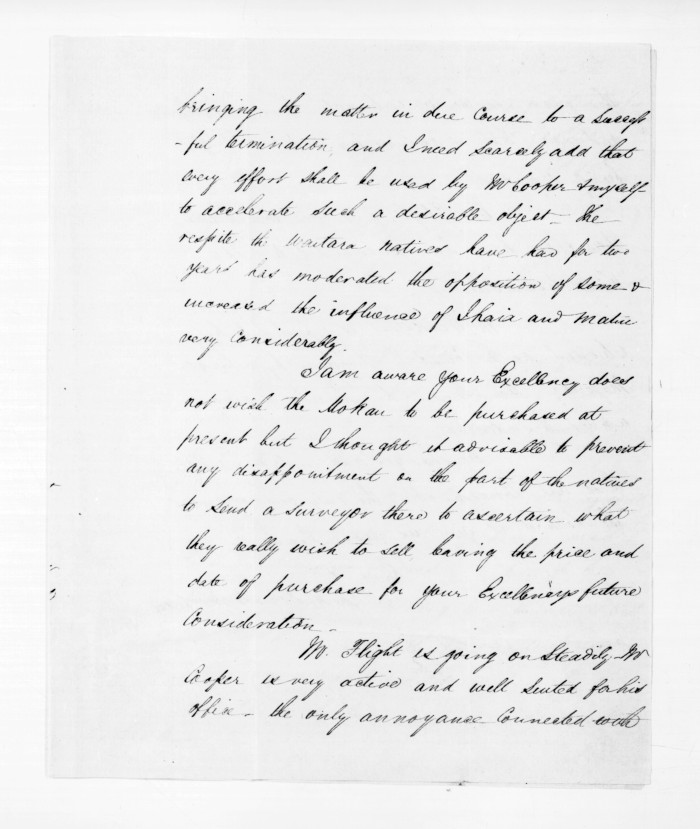 bringing the matter in due course to a Success
-ful termination, and I need scarcely add that
every effort shall be used by Mr Cooper & myself
to accelerate such a desirable object_ The
respite the Waitara natives have had for two
years has moderated the opposition of some &
increased the influence of Ihaia and Matiu
very considerably.
I am aware your Excellency does
not wish the Mokau to be purchased at
present but I thought it advisable to prevent
any disappointment on the part of the natives
to send a surveyor there to ascertain what
they really wish to sell leaving the price and
date of purchase for your Excellency's future
Consideration_
Mr. Flight is going on Steadily_ Mr
Cooper is very active and well suited for his
office_ the only annoyance Connected with